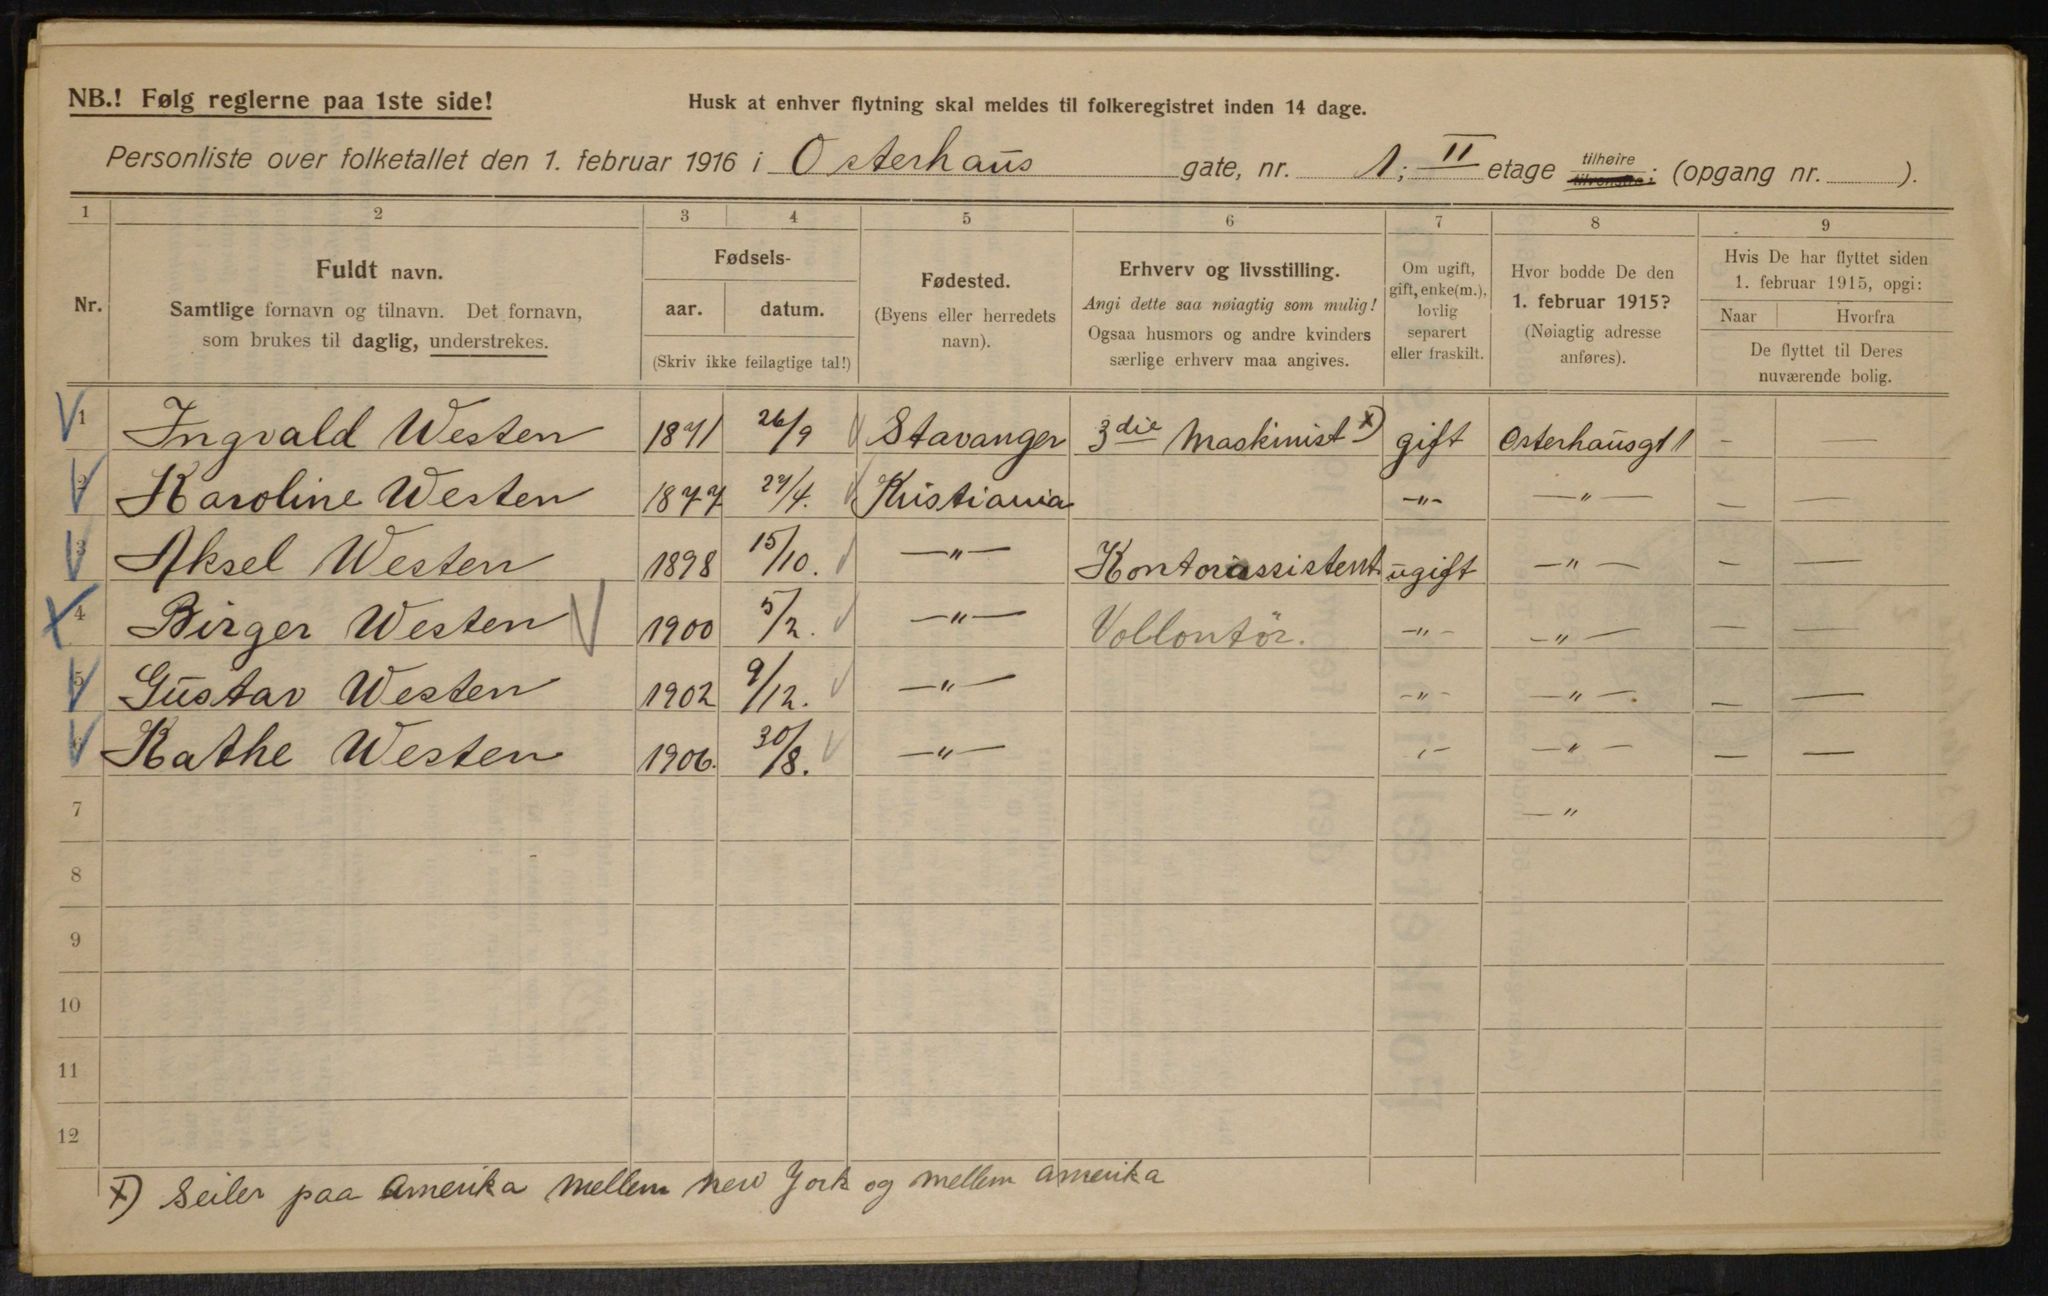 NB.! Følg reglerne paa 1ste side!
Husk at enhver flytning skal meldes til folkeregistret inden 14 dage.
Personliste over folketallet den 1. februar 1916 i Osterhaus gate, nr. 1; II etage tilhøire tilvenstre; (opgang nr. ).
1 2 3 4 5 6 7 8 9
Nr.
Fuldt navn.
Samtlige fornavn og tilnavn. Det fornavn,
som brukes til daglig, understrekes.
Fødsels-
aar. datum.
(Skriv ikke feilagtige tal!)
Fødested.
(Byens eller herredets
navn).
Erhverv og livsstilling.
Angi dette saa nøiagtig som mulig!
Ogsaa husmors og andre kvinders
særlige erhverv maa angives.
Om ugift,
gift, enke(m.),
lovlig
separert
eller fraskilt.
Hvor bodde De den
1. februar 1915?
(Nøiagtig adresse
anføres).
Hvis De har flyttet siden
1. februar 1915, opgi:
Naar Hvorfra
De flyttet til Deres
nuværende bolig.
1 Ingvald Westen 1871 26/9 Stavanger 3die Maskinist x) gift Osterhausgt 1 - —
2 Karoline Westen 1877 27/4. Kristiania -"- —"— — —
3 Aksel Westen 1898 15/10. —"— Kontorassistent ugift —"— — —
4 Birger Westen 1900 5/2. —"— Vollontör. -"- —"— — —
5 Gustav Westen 1902 9/12. —"— -"- —"— — —
Kathe Westen 1906. 30/8. —"— "- —"— — —
7 —"
8
9
10
11
12
x) Seiler paa Amerika mellem New York og mellem Amerika